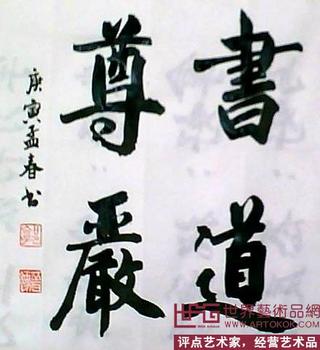 書道
尊嚴
庚寅孟春书
世界藝術品網
评点艺术家，经营艺术品